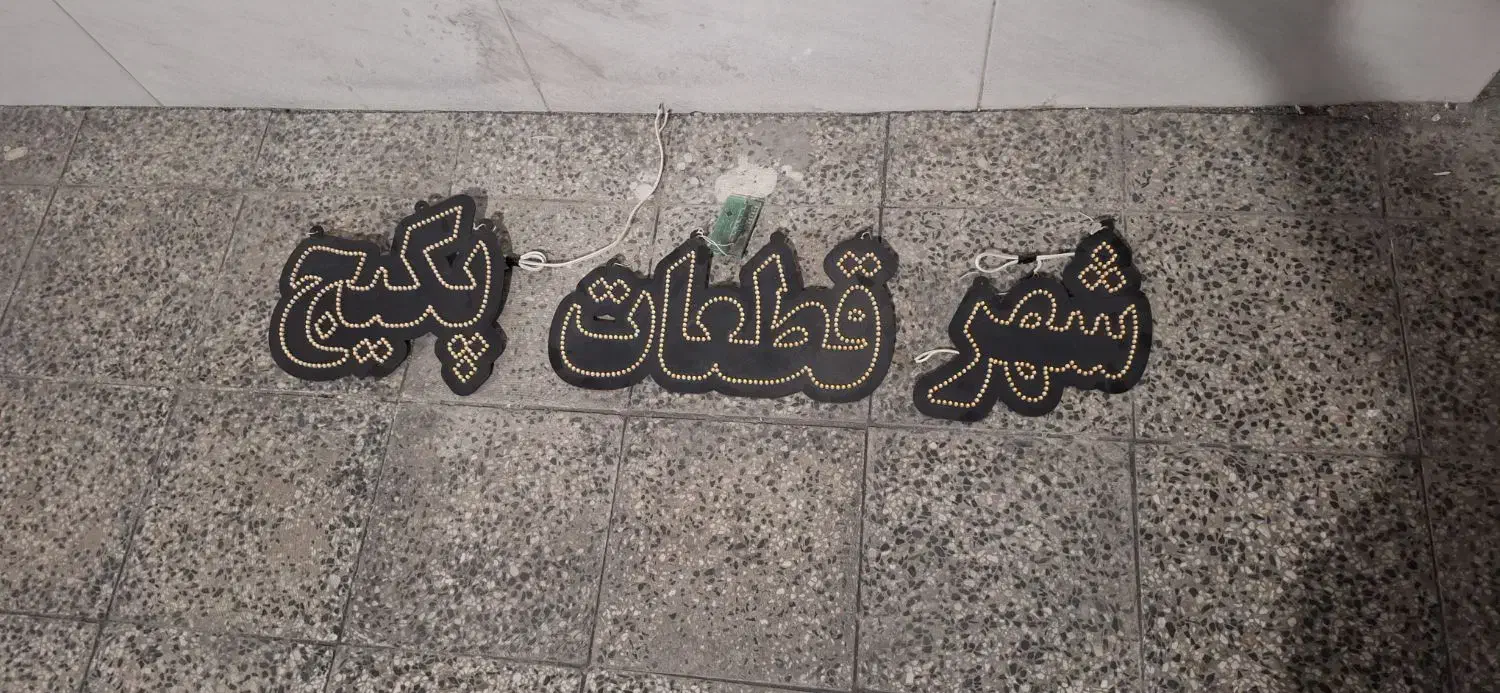 شهر قطعات پکیج